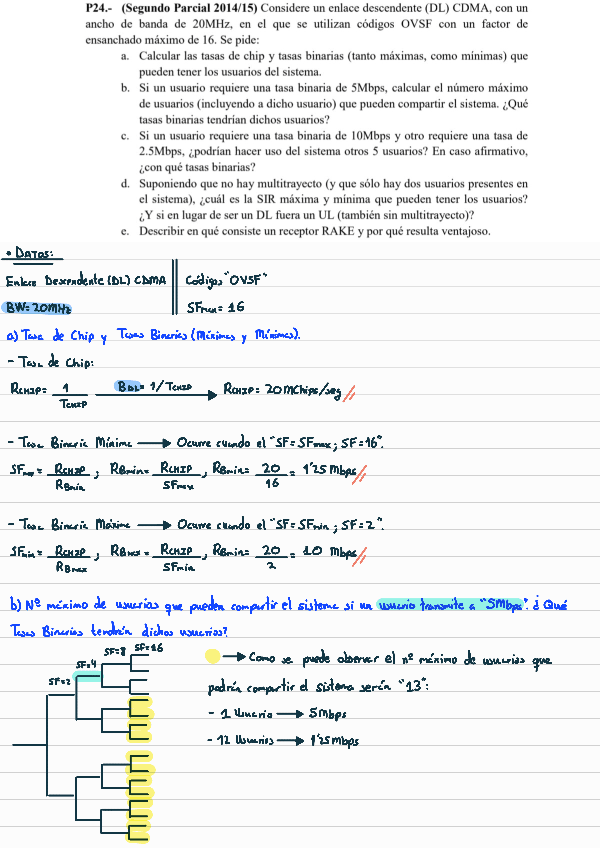 P24.- (Segundo Parcial 2014/15) Considere un enlace descendente (DL) CDMA, con un
ancho de banda de 20MHz, en el que se utilizan códigos OVSF con un factor de
ensanchado máximo de 16. Se pide:
a. Calcular las tasas de chip y tasas binarias (tanto máximas, como mínimas) que
pueden tener los usuarios del sistema.
b. Si un usuario requiere una tasa binaria de 5Mbps, calcular el número máximo
de usuarios (incluyendo a dicho usuario) que pueden compartir el sistema. ¿Qué
tasas binarias tendrían dichos usuarios?
c. Si un usuario requiere una tasa binaria de 10Mbps y otro requiere una tasa de
2.5Mbps, ¿podrían hacer uso del sistema otros 5 usuarios? En caso afirmativo,
¿con qué tasas binarias?
d. Suponiendo que no hay multitrayecto (y que sólo hay dos usuarios presentes en
el sistema), ¿cuál es la SIR máxima y mínima que pueden tener los usuarios?
¿Y si en lugar de ser un DL fuera un UL (también sin multitrayecto)?
e. Describir en qué consiste un receptor RAKE y por qué resulta ventajoso.
• DATOS:
Enlace Descendente (DL) CDMA
Códigos "OVSF"
BW=20MHz
SFmax= 16
a) Tasa de Chip y Tasas Binarias (Máximas y Mínimas).
- Tasa de Chip:
RCHIP= 1/TCHIP BDL= 1/TCHIP → RCHIP= 20MChips/seg
- Tasa Binaria Mínima → Ocurre cuando el "SF=SFmax; SF=16".
SFmax= RCHIP/RBmin; RBmin= RCHIP/SFmax, RBmin= 20/16 = 1'25 Mbps
- Tasa Binaria Máxima → Ocurre cuando el "SF=SFmin; SF=2".
SFmin= RCHIP/RBmax; RBmax= RCHIP/SFmin, RBmin= 20/2 = 10 Mbps
b) Nº máximo de usuarios que pueden compartir el sistema si un usuario transmite a "5Mbps". ¿Qué
Tasas Binarias tendrán dichos usuarios?
SF=2 SF=4 SF=8 SF=16
→ Como se puede observar el nº máximo de usuarios que
podrán compartir el sistema serán "13":
- 1 Usuario → 5Mbps
- 12 Usuarios → 1'25Mbps